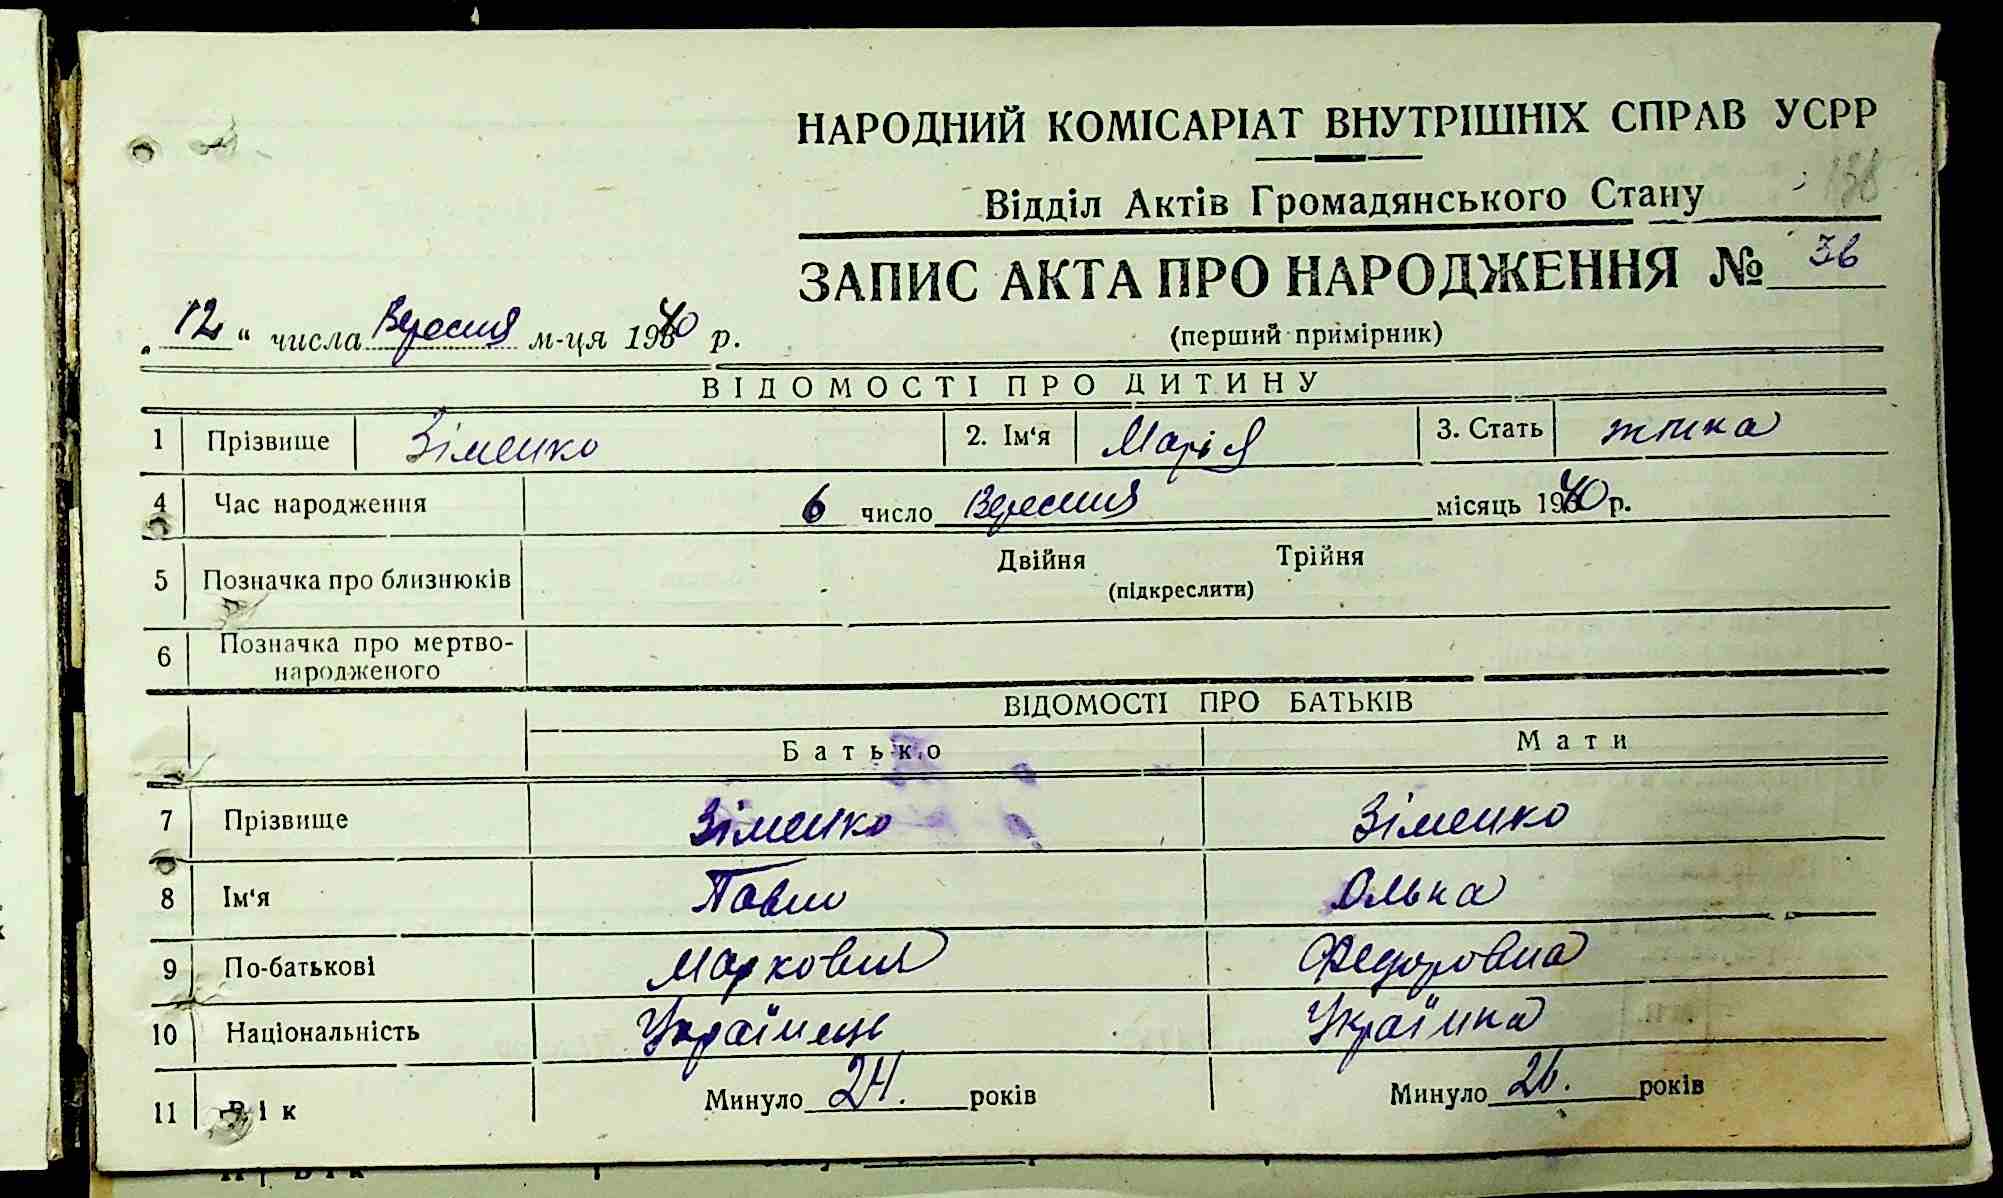 НАРОДНИЙ КОМІСАРІАТ ВНУТРІШНІХ СПРАВ УСРР
138
Відділ Актів Громадянського Стану
ЗАПИС АКТА ПРО НАРОДЖЕННЯ № 36
„12“ числа Вересня м-ця 1940 р.
(перший примірник)
ВІДОМОСТІ ПРО ДИТИНУ
1 Прізвище Зіменко 2. Ім‘я Марія 3. Стать жінка
4 Час народження 6 число Вересня місяць 1940 р.
5 Позначка про близнюків Двійня Трійня
(підкреслити)
6 Позначка про мертво-
народженого
ВІДОМОСТІ ПРО БАТЬКІВ
Батько Мати
7 Прізвище Зіменко Зіменко
8 Ім‘я Павло Ольга
9 По-батькові Маркович Федоровна
10 Національність Українець Українка
11 Вік Минуло 24. років Минуло 26. років